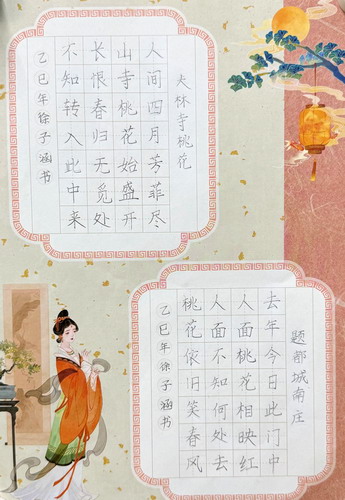 大林寺桃花
人间四月芳菲尽
山寺桃花始盛开
长恨春归无觅处
不知转入此中来
乙巳年徐子涵书
题都城南庄
去年今日此门中
人面桃花相映红
人面不知何处去
桃花依旧笑春风
乙巳年徐子涵书